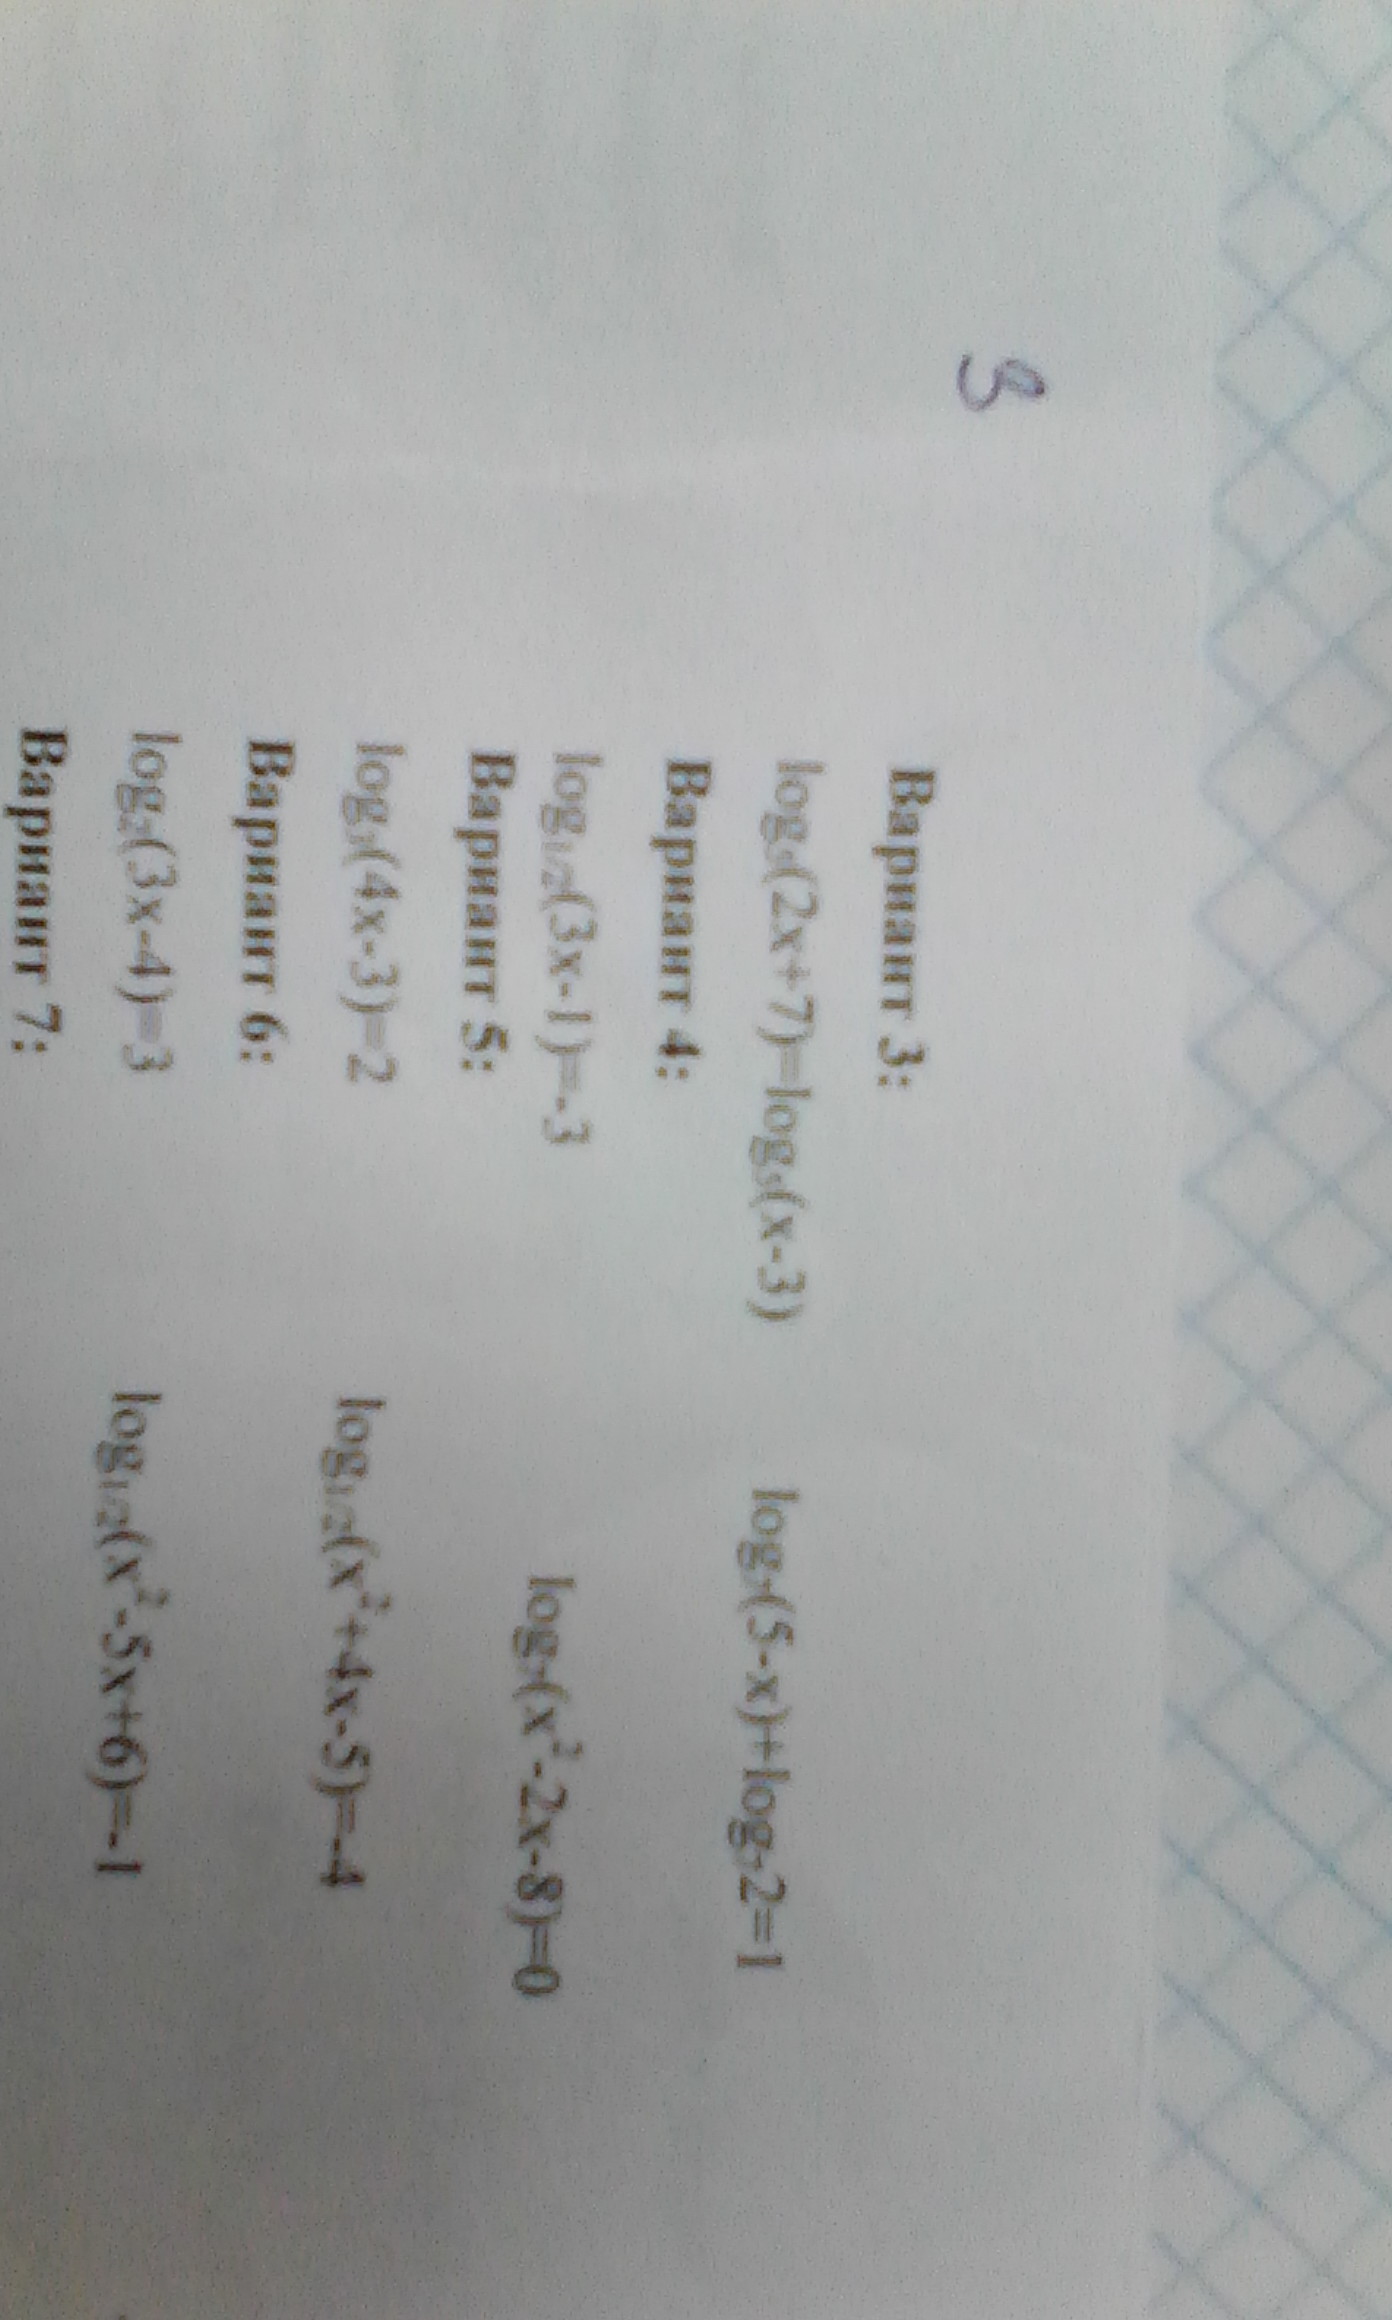 9
Вариант 3:
log₆(2x+7)=log₆(x-3) log₇(5-x)+log₇2=1
Вариант 4:
log₁/₂(3x-1)=-3 log₇(x²-2x-8)=0
Вариант 5:
log₃(4x-3)=2 log₁/₂(x²+4x-5)=-4
Вариант 6:
log₂(3x-4)=3 log₁/₂(x²-5x+6)=-1
Вариант 7: